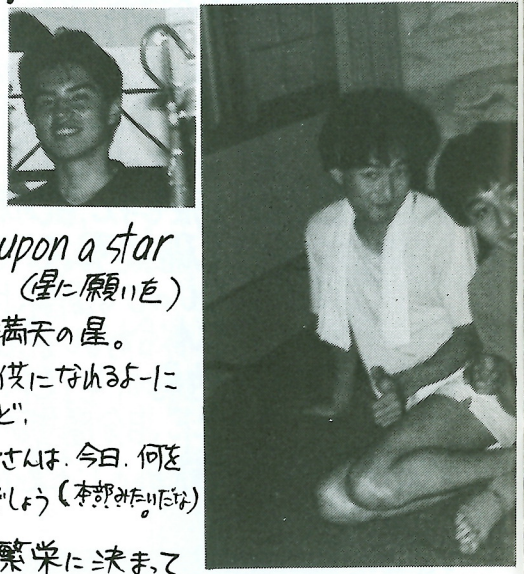 upon a star
(星に願いを)
満天の星。
供になれるよーに
ど、
さんは、今日、何を
でしょう(本部みたいだな)。
繁栄に決まって